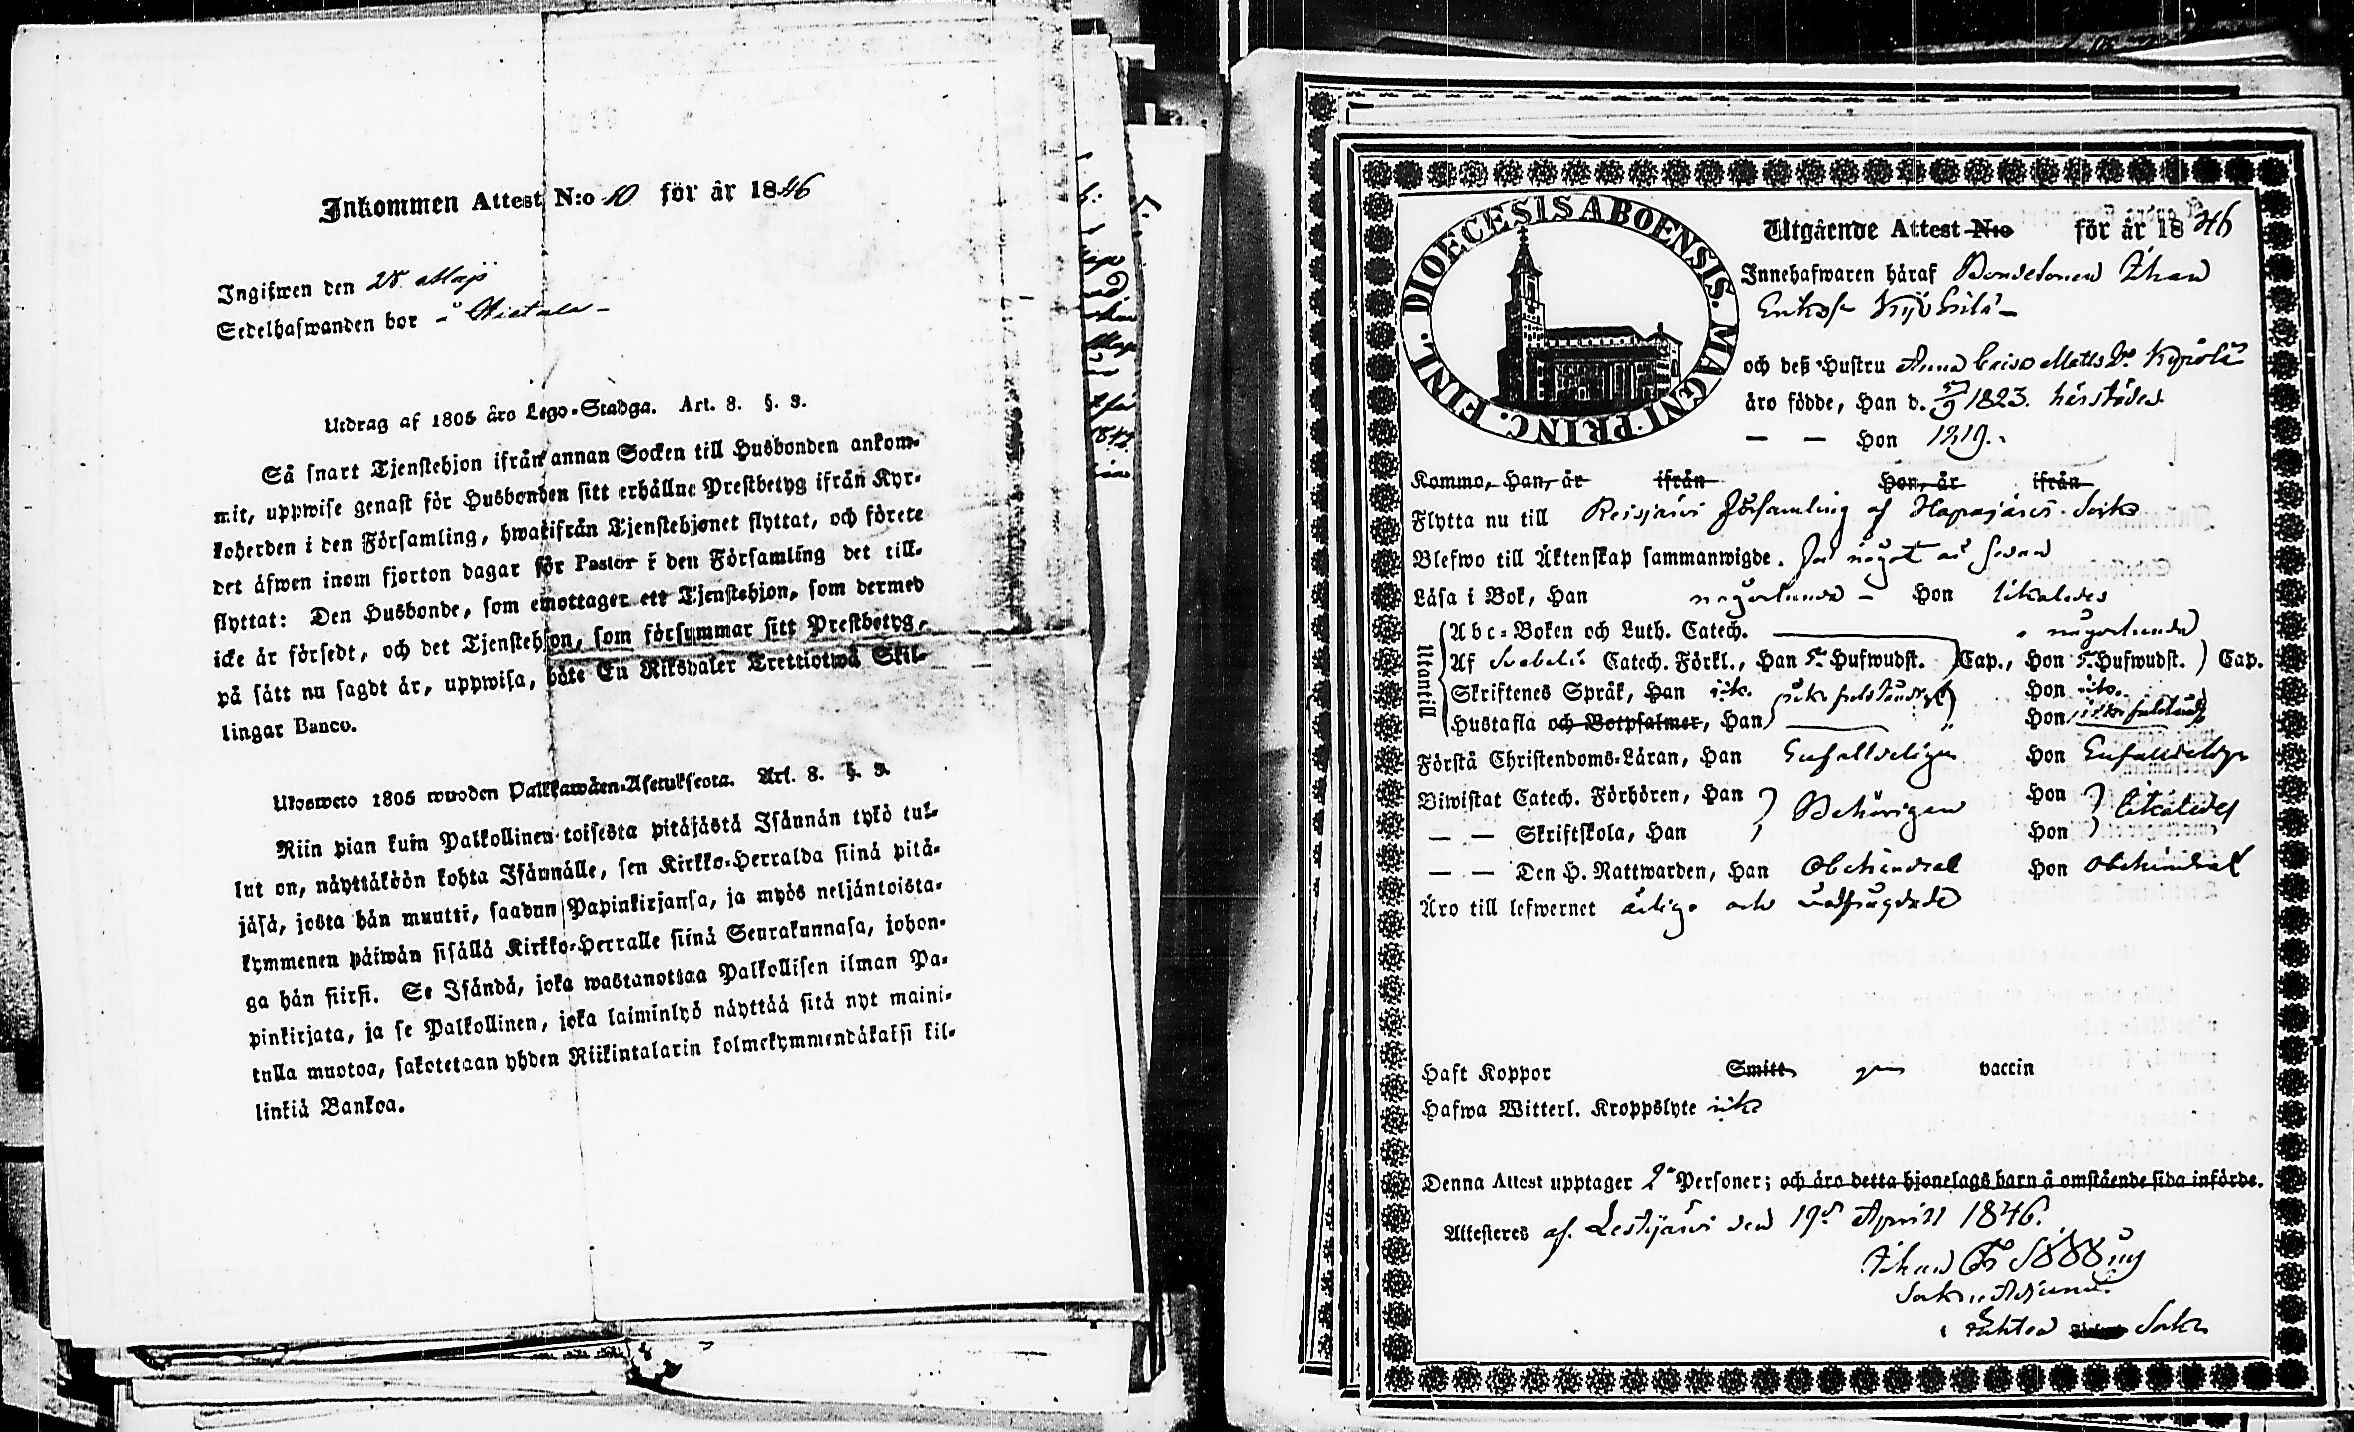 Inkommen Attest N:o 10 för år 1846
Ingifwen den 28 Maji
Sedelhafwanden bor å Hietala
Utdrag af 1805 åro Lego-Stadga. Art. 8. §. 3.
Så snart Tjenstehjon ifrån annan Socken till Husbonden ankom-
mit, uppwise genast för Husbonden sitt erhållne Prestbetyg ifrån Kyr-
koherden i den Församling, hwarifrån Tjenstehjonet flyttat, och förete
det äfwen inom fjorton dagar för Pastor i den Församling det till-
flyttat: Den Husbonde, som emottager ett Tjenstehjon, som dermed
icke är försedt, och det Tjenstehjon, som försummar sitt Prestbetyg,
på sätt nu sagdt är, uppwisa, böte En Riksdaler Trettiotwå Skil-
lingar Banco.
Ulosweto 1805 wuoden Palkkawäen-Asetuksesta. Art. 8. §. 3.
Niin pian kuin Palkollinen toisesta pitäjästä Isännän tykö tul-
lut on, näyttäköön kohta Isännälle, sen Kirkko-Herralda siinä pitä-
jäsä, josta hän muutti, saadun Papinkirjansa, ja myös neljäntoista-
kymmenen päiwän sisällä Kirkko-Herralle siinä Seurakunnasa, johon-
ga hän siirsi. Se Isändä, joka wastanottaa Palkollisen ilman Pa-
pinkirjata, ja se Palkollinen, joka laiminlyö näyttää sitä nyt maini-
tulla muotoa, sakotetaan yhden Riikintalarin kolmekymmendäkaksi kil-
linkiä Bankoa.
DIOECESIS ABOENSIS. MAGNI. PRINC. FINL.
Utgående Attest N:o för år 1846
Innehafwaren häraf Bondesonen Johan
Eriksson
och deß Hustru Anna Caisa Matts Dr
äro födde, Han d. 5/9 1823. härstädes
— — Hon 1819.
Komme, Han, är ifrån Hon, är ifrån
Flytta nu till Reisjärvi församling af Haapajärvi Sokn
Blefwo till Äktenskap sammanwigde. för något år sedan
Läsa i Bok, Han någorlunda Hon likaledes
Utantill
Abc-Boken och Luth. Catech. — någorlunda
Af Svebelii Catech. Förkl., Han 5. Hufwudst. Cap., Hon 5. Hufwudst. Cap.
Skriftenes Språk, Han icke fullständigt Hon
Hustafla och Botpsalmer, Han Hon
Förstå Christendoms-Läran, Han Enfalldeligen Hon Enfalldeligen
Biwistat Catech. Förhören, Han Behörigen Hon likaledes
— — Skriftskola, Han Hon
— — Den H. Nattwarden, Han Obehindrad Hon Obehindrad
Äro till lefwernet ärlige och välfrägdade
Haft Koppor Smitt vaccin
Hafwa Witterl. Kroppslyte icke
Denna Attest upptager 2 Personer; och äro detta hjonelags barn å omstående sida införde.
Attesteres af. Lestijärvi den 19de April 1846.
Johan
Sokn. Adjunct.
i Lohteå Sokn